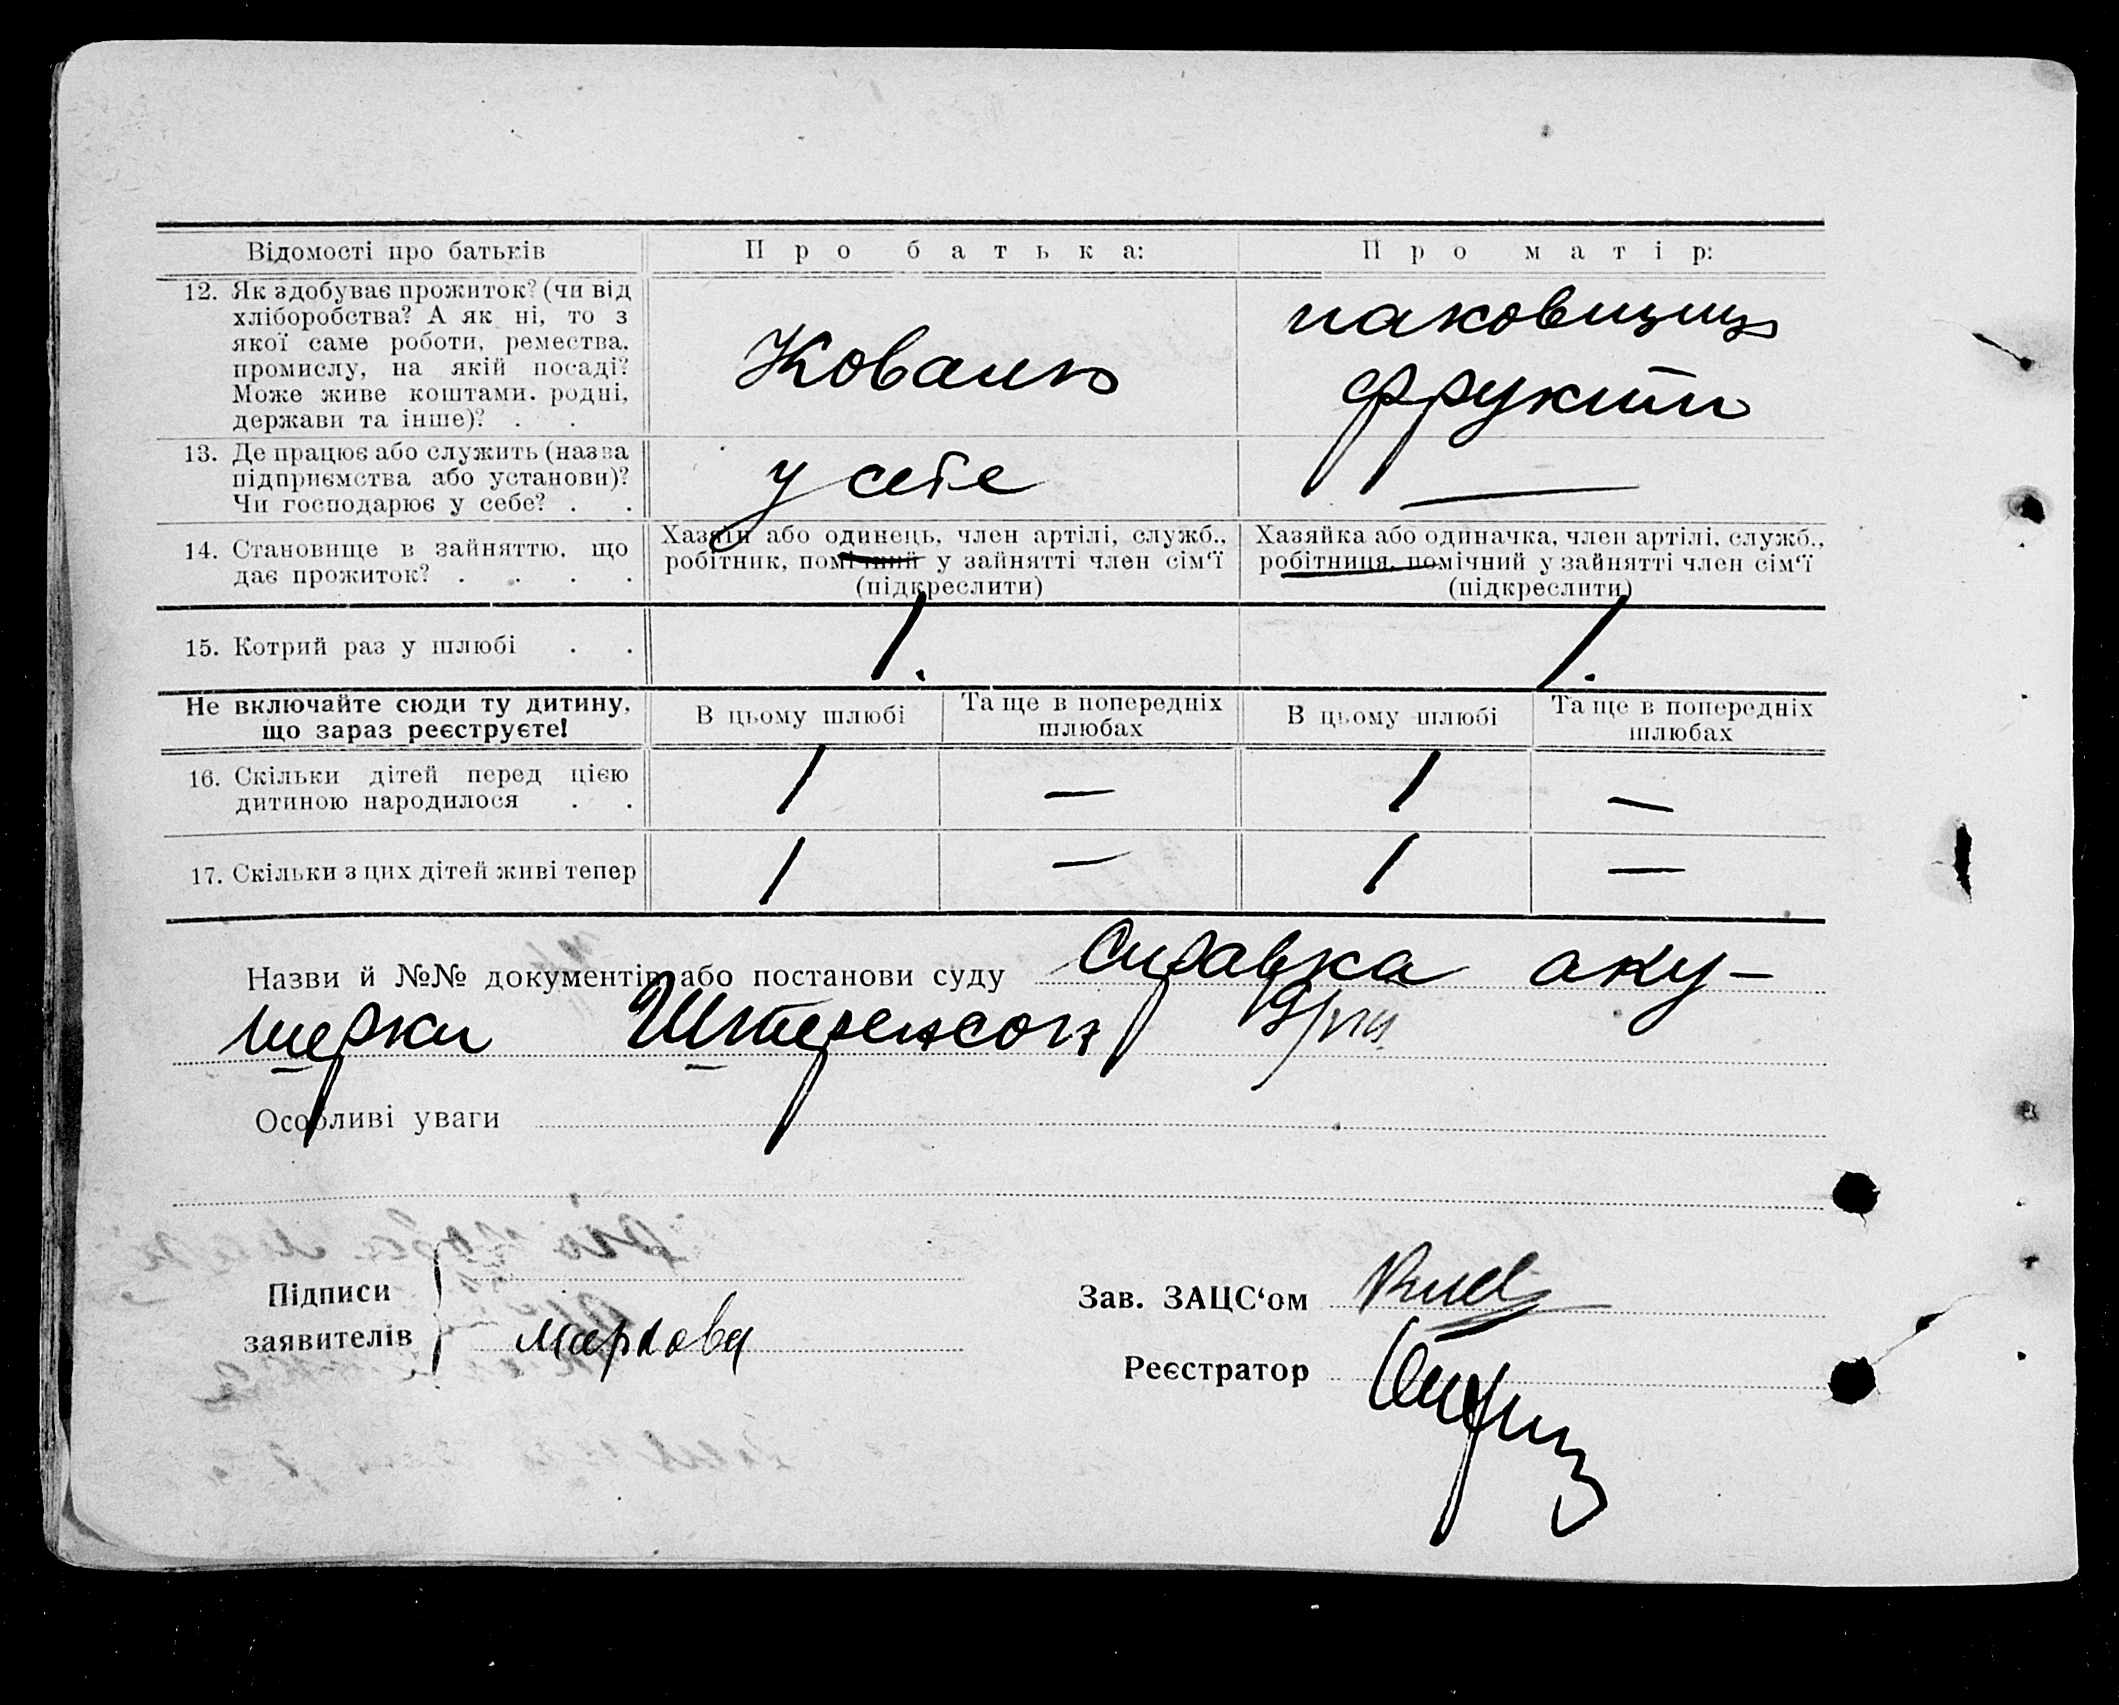 Відомості про батьків
П р о   б а т ь к а:
П р о   м а т і р:
12. Як здобуває прожиток? (чи від
хліборобства? А як ні, то з
якої саме роботи, ремества,
промислу, на якій посаді?
Може живе коштами. родні,
держави та інше)? . .
Коваль
паковщица
фрукти
13. Де працює або служить (назва
підприємства або установи)?
Чи господарює у себе? . .
у себе
—
14. Становище в зайняттю, що
дає прожиток? . . . .
Хазяїн або одинець, член артілі, служб.,
робітник, помічний у зайнятті член сім‘ї
(підкреслити)
Хазяйка або одиначка, член артілі, служб.,
робітниця, помічний у зайнятті член сім‘ї
(підкреслити)
15. Котрий раз у шлюбі . .
1.
1.
Не включайте сюди ту дитину,
що зараз реєструєте!
В цьому шлюбі
Та ще в попередніх
шлюбах
В цьому шлюбі
Та ще в попередніх
шлюбах
16. Скільки дітей перед цією
дитиною народилося . .
1
—
1
—
17. Скільки з цих дітей живі тепер
1
—
1
—
Назви й №№ документів або постанови суду Справка аку-
шерки Штеренсон
Особливі уваги
Підписи
заявителів
Маркова
Зав. ЗАЦС‘ом
Реєстратор